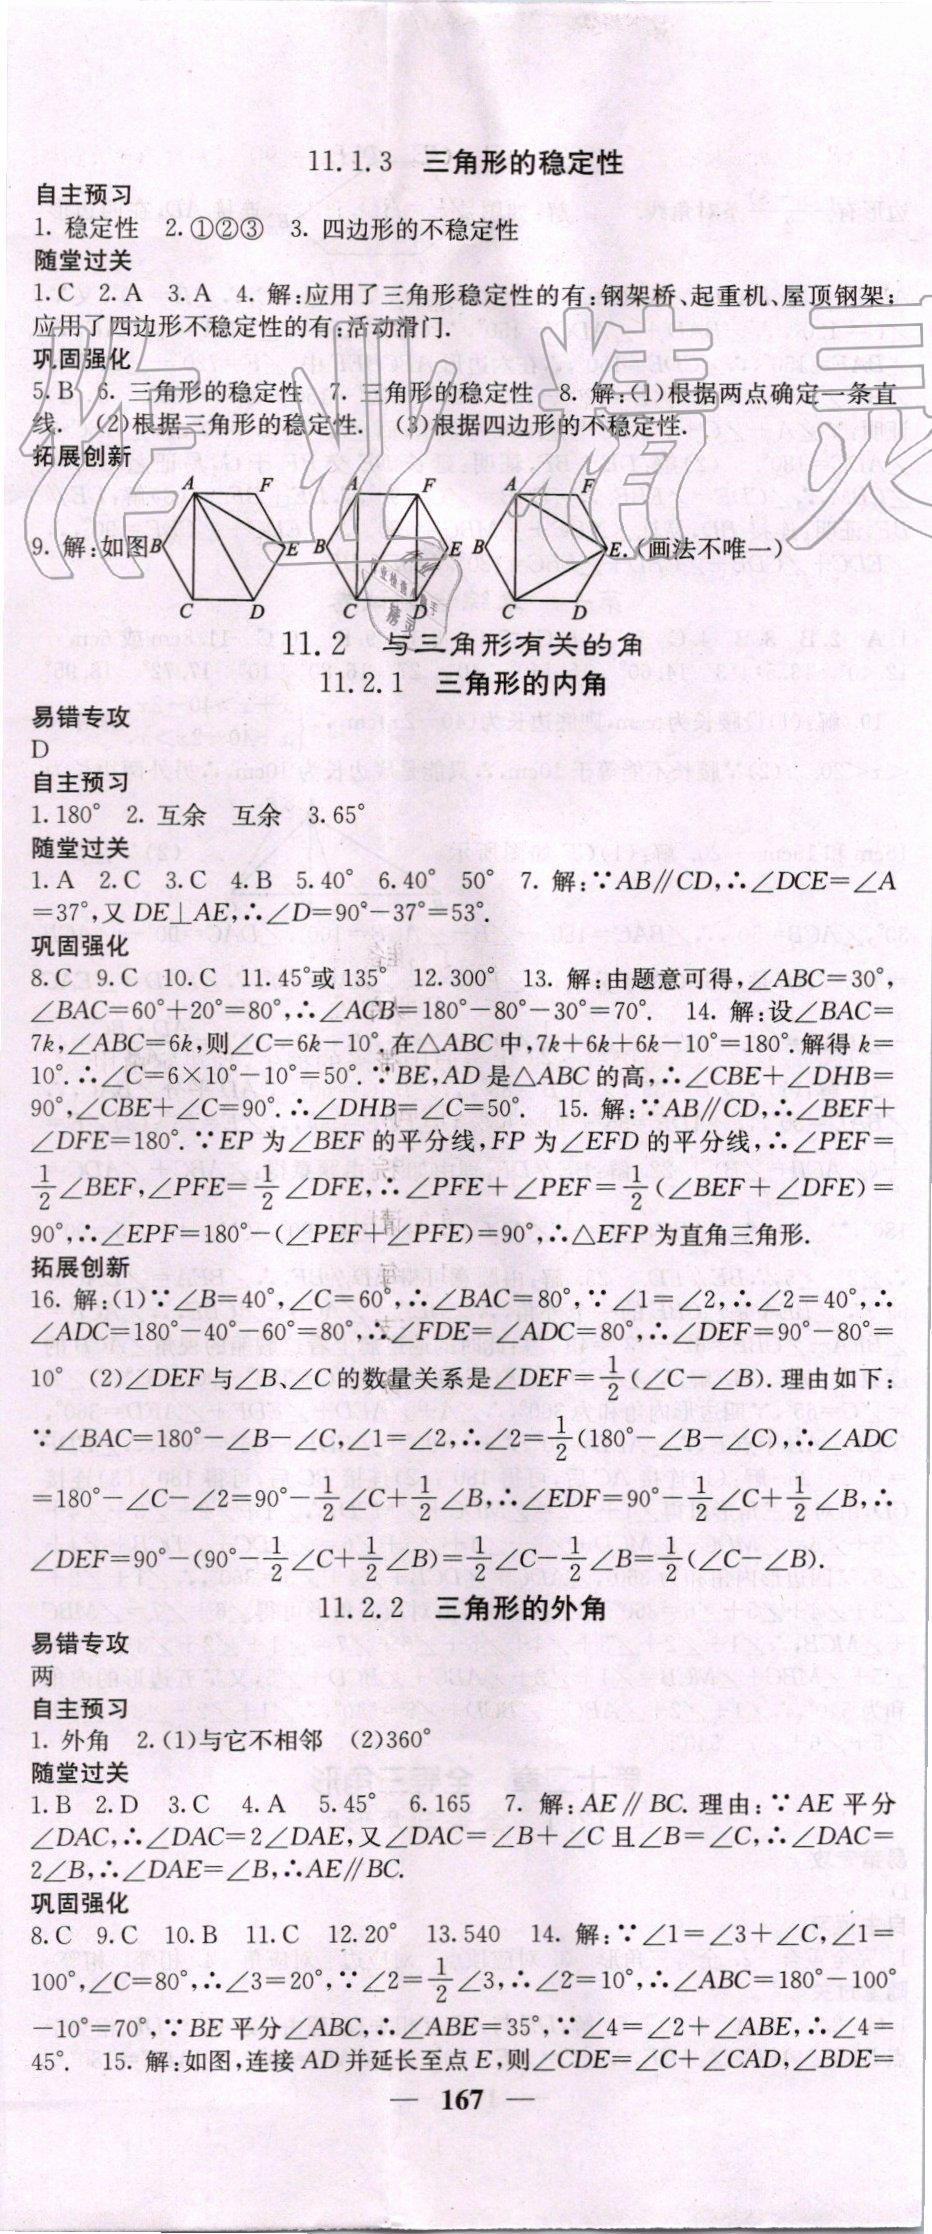 11.1.3 三角形的稳定性
自主预习
1. 稳定性 2.①②③ 3. 四边形的不稳定性
随堂过关
1.C 2.A 3.A 4. 解:应用了三角形稳定性的有:钢架桥、起重机、屋顶钢架;
应用了四边形不稳定性的有:活动滑门.
巩固强化
5.B 6. 三角形的稳定性 7. 三角形的稳定性 8. 解:(1)根据两点确定一条直
线. (2)根据三角形的稳定性. (3)根据四边形的不稳定性.
拓展创新
A F A F A F
9. 解:如图 B E B E B E.(画法不唯一)
C D C D C D
11.2 与三角形有关的角
11.2.1 三角形的内角
易错专攻
D
自主预习
1.180° 2. 互余 互余 3.65°
随堂过关
1.A 2.C 3.C 4.B 5.40° 6.40° 50° 7. 解:∵AB∥CD,∴∠DCE=∠A
=37°,又 DE⊥AE,∴∠D=90°-37°=53°.
巩固强化
8.C 9.C 10.C 11.45°或 135° 12.300° 13. 解:由题意可得,∠ABC=30°,
∠BAC=60°+20°=80°,∴∠ACB=180°-80°-30°=70°. 14. 解:设∠BAC=
7k,∠ABC=6k,则∠C=6k-10°.在△ABC中,7k+6k+6k-10°=180°.解得 k=
10°.∴∠C=6×10°-10°=50°.∵BE,AD 是△ABC 的高,∴∠CBE+∠DHB=
90°,∠CBE+∠C=90°.∴∠DHB=∠C=50°. 15. 解:∵AB∥CD,∴∠BEF+
∠DFE=180°.∵EP 为∠BEF 的平分线,FP 为∠EFD 的平分线,∴∠PEF=
1/2∠BEF,∠PFE=1/2∠DFE,∴∠PFE+∠PEF=1/2(∠BEF+∠DFE)=
90°,∴∠EPF=180°-(∠PEF+∠PFE)=90°,∴△EFP 为直角三角形.
拓展创新
16. 解:(1)∵∠B=40°,∠C=60°,∴∠BAC=80°,∵∠1=∠2,∴∠2=40°,∴
∠ADC=180°-40°-60°=80°,∴∠FDE=∠ADC=80°,∴∠DEF=90°-80°=
10° (2)∠DEF 与∠B、∠C 的数量关系是∠DEF=1/2(∠C-∠B).理由如下:
∵∠BAC=180°-∠B-∠C,∠1=∠2,∴∠2=1/2(180°-∠B-∠C),∴∠ADC
=180°-∠C-∠2=90°-1/2∠C+1/2∠B,∴∠EDF=90°-1/2∠C+1/2∠B,∴
∠DEF=90°-(90°-1/2∠C+1/2∠B)=1/2∠C-1/2∠B=1/2(∠C-∠B).
11.2.2 三角形的外角
易错专攻
两
自主预习
1. 外角 2.(1)与它不相邻 (2)360°
随堂过关
1.B 2.D 3.C 4.A 5.45° 6.165 7. 解:AE∥BC.理由:∵AE 平分
∠DAC,∴∠DAC=2∠DAE,又∠DAC=∠B+∠C 且∠B=∠C,∴∠DAC=
2∠B,∴∠DAE=∠B,∴AE∥BC.
巩固强化
8.C 9.C 10.B 11.C 12.20° 13.540 14. 解:∵∠1=∠3+∠C,∠1=
100°,∠C=80°,∴∠3=20°,∵∠2=1/2∠3,∴∠2=10°,∴∠ABC=180°-100°
-10°=70°,∵BE 平分∠ABC,∴∠ABE=35°,∵∠4=∠2+∠ABE,∴∠4=
45°. 15. 解:如图,连接 AD 并延长至点 E,则∠CDE=∠C+∠CAD,∠BDE=
— 167 —